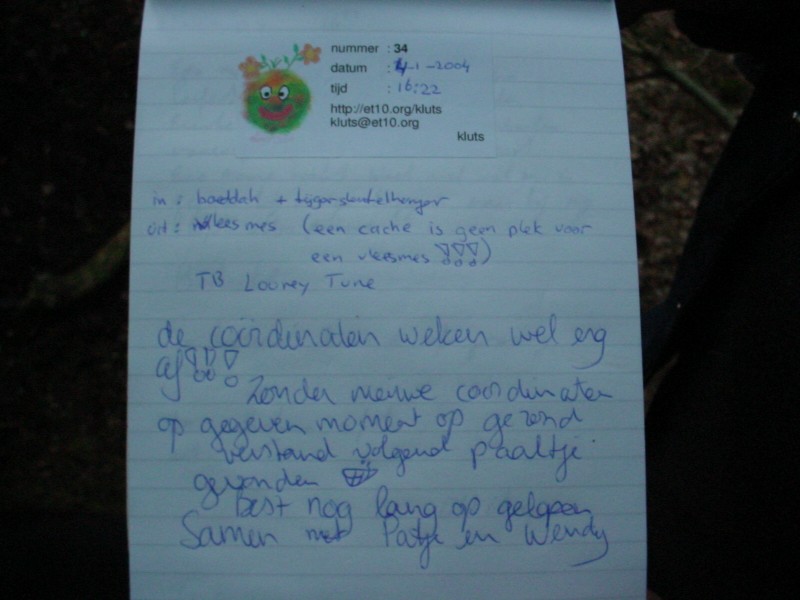 nummer : 34
datum : 4-1-2004
tijd : 16:22
http://et10.org/kluts
kluts@et10.org
kluts
in: boeddah + tijgersleutelhanger
uit: vleesmes (een cache is geen plek voor
een vleesmes !!!)
TB Looney Tune
de coördinaten weken wel erg
af!!!
Zonder nieuwe coordinaten
op gegeven moment op gezond
verstand volgend paaltje
gevonden
Best nog lang op gelopen
Samen met Patje en Wendy